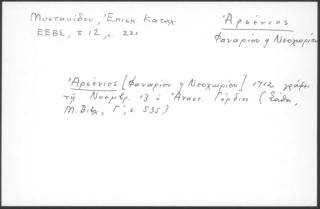 Μυστακίδου, Ἐπισκ. Κατάλ.
ΕΕΒΣ, τ. 12, σ. 221
Ἀρσένιος
Φαναρίου ἢ Νεοχωρίου
Ἀρσένιος [Φαναρίου ἢ Νεοχωρίου] 1712 γράφει
τῇ Νοεμβρ. 13 ὁ Ἀναστ. Γόρδιος (Σάθα,
Μ. Βιβλ., Γ', σ. 535)